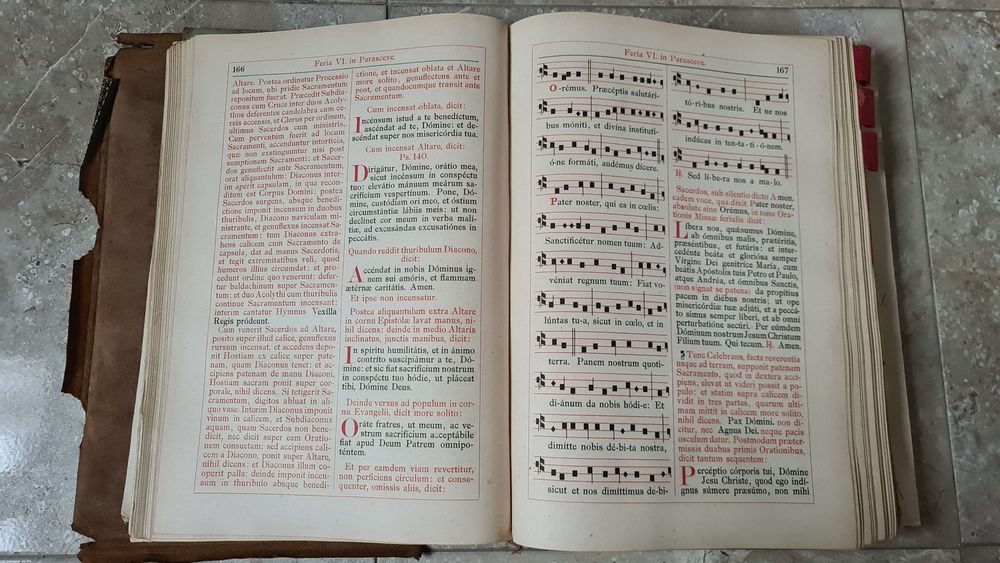 166
Feria VI. in Parasceve.
Altare. Postea ordinatur Processio
ad locum, ubi pridie Sacramentum
repositum fuerat. Præcedit Subdia-
conus cum Cruce inter duos Acoly-
thos deferentes candelabra cum ce-
reis accensis, et Clerus per ordinem,
ultimus Sacerdos cum ministris.
Cum perventum fuerit ad locum
Sacramenti, accenduntur intorticia,
quæ non extinguuntur nisi post
sumptionem Sacramenti: et Sacer-
dos genuflectit ante Sacramentum,
orat aliquantulum: Diaconus inter-
im aperit capsulam, in qua recon-
ditum est Corpus Domini: postea
Sacerdos surgens, absque benedi-
ctione imponit incensum in duobus
thuribulis, Diacono naviculam mi-
nistrante, et genuflexus incensat Sa-
cramentum: tum Diaconus extra-
hens calicem cum Sacramento de
capsula, dat ad manus Sacerdotis,
et tegit extremitatibus veli, quod
humeros illius circumdat: et pro-
cedunt ordine quo venerunt: defer-
tur baldachinum super Sacramen-
tum: et duo Acolythi cum thuribulis
continue Sacramentum incensant:
interim cantatur Hymnus Vexilla
Regis pródeunt.
Cum venerit Sacerdos ad Altare,
posito super illud calice, genuflexus
rursum incensat, et accedens depo-
nit Hostiam ex calice super pate-
nam, quam Diaconus tenet: et ac-
cipiens patenam de manu Diaconi,
Hostiam sacram ponit super cor-
porale, nihil dicens. Si tetigerit Sa-
cramentum, digitos abluat in ali-
quo vase. Interim Diaconus imponit
vinum in calicem, et Subdiaconus
aquam, quam Sacerdos non bene-
dicit, nec dicit super eam Oratio-
nem consuetam: sed accipiens calic-
em a Diacono, ponit super Altare,
nihil dicens: et Diaconus illum co-
operit palla: deinde imponit incen-
sum in thuribulo absque benedi-
ctione, et incensat oblata et Altare
more solito, genuflectens ante et
post, et quandocumque transit ante
Sacramentum.
Cum incensat oblata, dicit:
Incénsum istud a te benedíctum,
ascéndat ad te, Dómine: et de-
scéndat super nos misericórdia tua.
Cum incensat Altare, dicit:
Ps. 140.
Dirigátur, Dómine, orátio mea,
sicut incénsum in conspéctu
tuo: elevátio mánuum meárum sa-
crifícium vespertínum. Pone, Dó-
mine, custódiam ori meo, et óstium
circumstántiæ lábiis meis: ut non
declínet cor meum in verba malí-
tiæ, ad excusándas excusatiónes in
peccátis.
Quando reddit thuribulum Diacono,
dicit:
Accéndat in nobis Dóminus ig-
nem sui amóris, et flammam
ætérnæ caritátis. Amen.
Et ipse non incensatur.
Postea aliquantulum extra Altare
in cornu Epistolæ lavat manus, ni-
hil dicens: deinde in medio Altaris
inclinatus, junctis manibus, dicit:
In spíritu humilitátis, et in ánimo
contríto suscipiámur a te, Dó-
mine: et sic fiat sacrifícium nostrum
in conspéctu tuo hódie, ut pláceat
tibi, Dómine Deus.
Deinde versus ad populum in cor-
nu Evangelii, dicit more solito:
Oráte fratres, ut meum, ac ve-
strum sacrifícium acceptábile
fiat apud Deum Patrem omnipo-
téntem.
Et per eamdem viam revertitur,
non perficiens circulum: et conse-
quenter, omissis aliis, dicit:
Feria VI. in Parasceve.
167
O-rémus. Præcéptis salutári-
bus móniti, et divína instituti-
óne formáti, audémus dícere.
Pater noster, qui es in cœlis:
Sanctificétur nomen tuum: Ad-
véniat regnum tuum: Fiat vo-
lúntas tu-a, sicut in cœlo, et in
terra. Panem nostrum quoti-
di-ánum da nobis hódi-e: Et
dimítte nobis dé-bi-ta nostra,
sicut et nos dimíttimus de-bi-
tó-ri-bus nostris. Et ne nos
indúcas in ten-ta-ti-ó-nem.
℟. Sed lí-be-ra nos a ma-lo.
Sacerdos, sub silentio dicto Amen.
eadem voce, qua dixit Pater noster,
absolute sine Orémus, in tono Ora-
tionis Missæ ferialis dicit:
Líbera nos, quǽsumus Dómine,
ab ómnibus malis, prætéritis,
præséntibus, et futúris: et inter-
cedénte beáta et gloriósa semper
Vírgine Dei genitríce María, cum
beátis Apóstolis tuis Petro et Paulo,
atque Andréa, et ómnibus Sanctis,
(non signat se patena) da propítius
pacem in diébus nostris: ut ope
misericórdiæ tuæ adjúti, et a peccá-
to simus semper líberi, et ab omni
perturbatióne secúri. Per eúmdem
Dóminum nostrum Jesum Christum
Fílium tuum. Qui tecum. ℟. Amen.
Tunc Celebrans, facta reverentia
usque ad terram, supponit patenam
Sacramento, quod in dextera acci-
piens, elevat ut videri possit a po-
pulo: et statim supra calicem di-
vidit in tres partes, quarum ulti-
mam mittit in calicem more solito,
nihil dicens. Pax Dómini. non di-
citur, nec Agnus Dei. neque pacis
osculum datur. Postmodum præter-
missis duabus primis Orationibus,
dicit tantum sequentem:
Percéptio córporis tui, Dómine
Jesu Christe, quod ego indí-
gnus súmere præsúmo, non mihi